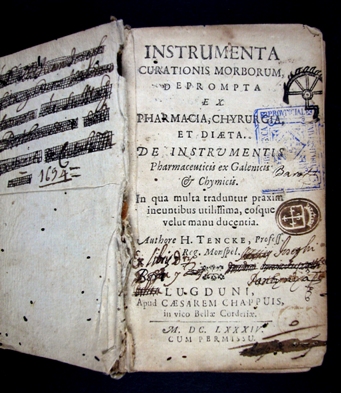 INSTRUMENTA
CURATIONIS MORBORUM,
DEPROMPTA
EX
PHARMACIA, CHYRURGIA,
ET DIÆTA.
DE INSTRUMENTIS
Pharmaceuticis ex Galenicis
& Chymicis.
In qua multa traduntur praxim
ineuntibus utilissima, eosque
velut manu ducentia.
Authore H. TENCKE, Profess.
Reg. Monspel.
Ex libris
LUGDUNI,
Apud CÆSAREM CHAPPUIS,
in vico Bellæ Corderiæ.
M. DC. LXXXIV.
CUM PERMISSU.
1694